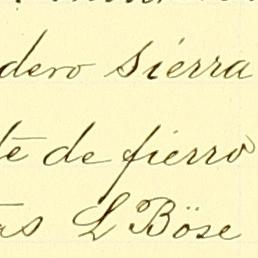 dero sierra
te de fierro
as L Böse